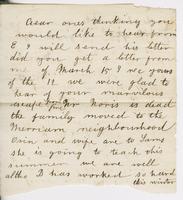 Dear ones thinking you
would like to hear from
E, I will send his letter
did you get a letter from
me of March 15 I rec yours
of the 11. we were glad to
hear of your marvilous
escape Mr Noris is dead
the family moved to the
Merriam neighbourhood
Orin and wife are to Sams
she is going to teach this
summer we are well
altho D has worked so hard
this winter